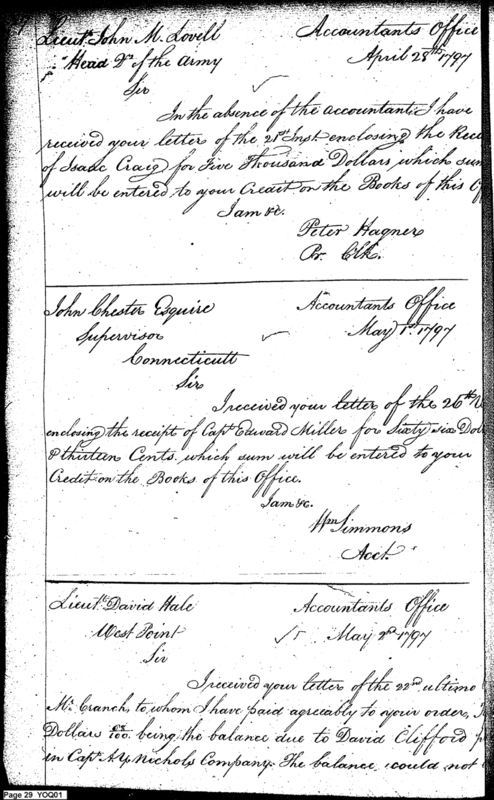 Lieut. John M. Lovell Accountants Office
Head Qrs of the Army April 28th 1797
Sir
In the absence of the accountant, I have
received your letter of the 21st Inst. enclosing the Rece
of Isaac Craig for Five Thousand Dollars which sum
will be entered to your Credit on the Books of this Of
I am &c.
Peter Hagner
Pr. Clk.
John Chester Esquire Accountants Office
Supervisor May 1st 1797
Connecticutt
Sir
I received your letter of the 26th
enclosing the receipt of Capt Edward Miller for Sixty six Dol
& thirteen Cents. which sum will be entered to your
Credit on the Books of this Office.
I am &c.
Wm Simmons
Acct.
Lieut. David Hale Accountants Office
West Point May 2d 1797
Sir
I received your letter of the 22nd ultimo
Mr. Cranch, to whom I have paid agreeably to your order,
Dollars being the balance due to David Clifford
in Capt. Nichols Company. The balance could not
Page 29 YOQ01